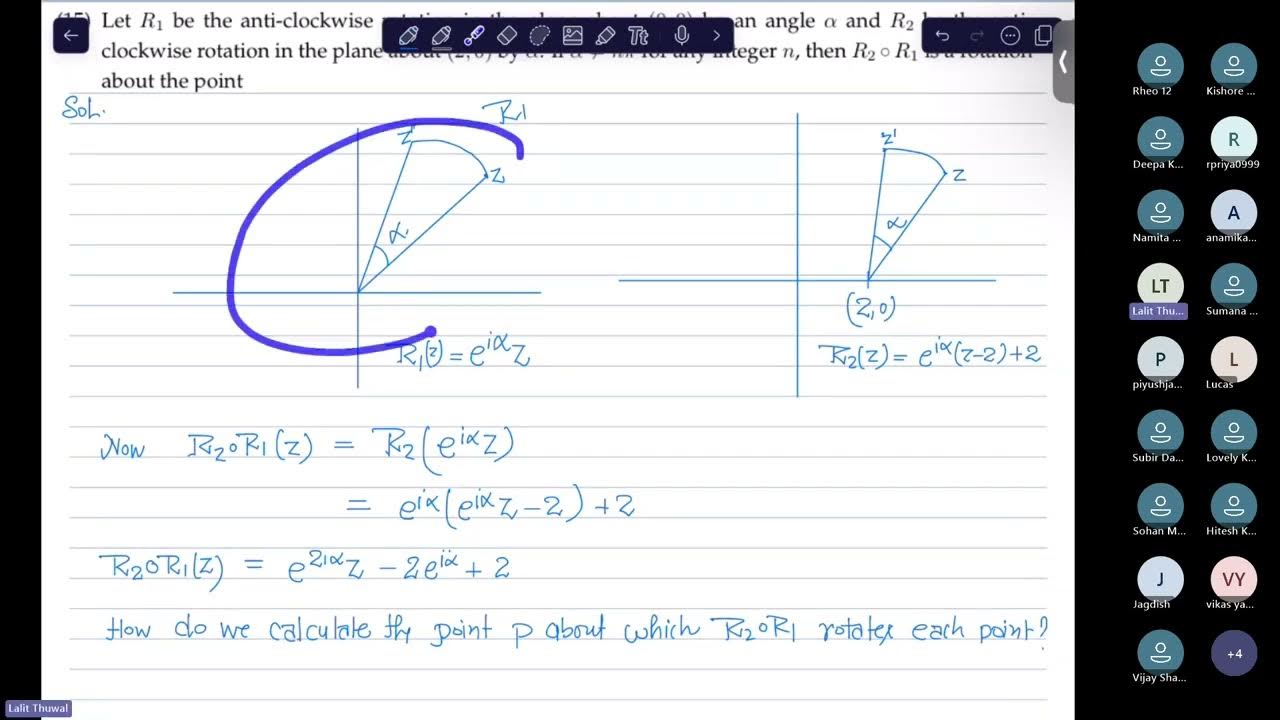 (15) Let R₁ be the anti-clockwise an angle α and R₂
clockwise rotation in the plane about integer n, then R₂ ∘ R₁ is a rotation
about the point
Sol.
R1
z'
z
α
R₁(z) = e^{iα}z
z'
z
α
(2,0)
R₂(z) = e^{iα}(z-2)+2
Now R₂∘R₁(z) = R₂(e^{iα}z)
= e^{iα}(e^{iα}z-2)+2
R₂∘R₁(z) = e^{2iα}z - 2e^{iα} + 2
How do we calculate the point p about which R₂∘R₁ rotates each point?
Tt
Rheo 12
Kishore ...
Deepa K...
R
rpriya0999
Namita ...
A
anamika...
LT
Lalit Thu...
Sumana ...
P
piyushja...
L
Lucas
Subir Da...
Lovely K...
Sohan M...
Hitesh K...
J
Jagdish
VY
vikas ya...
Vijay Sha...
+4
Lalit Thuwal